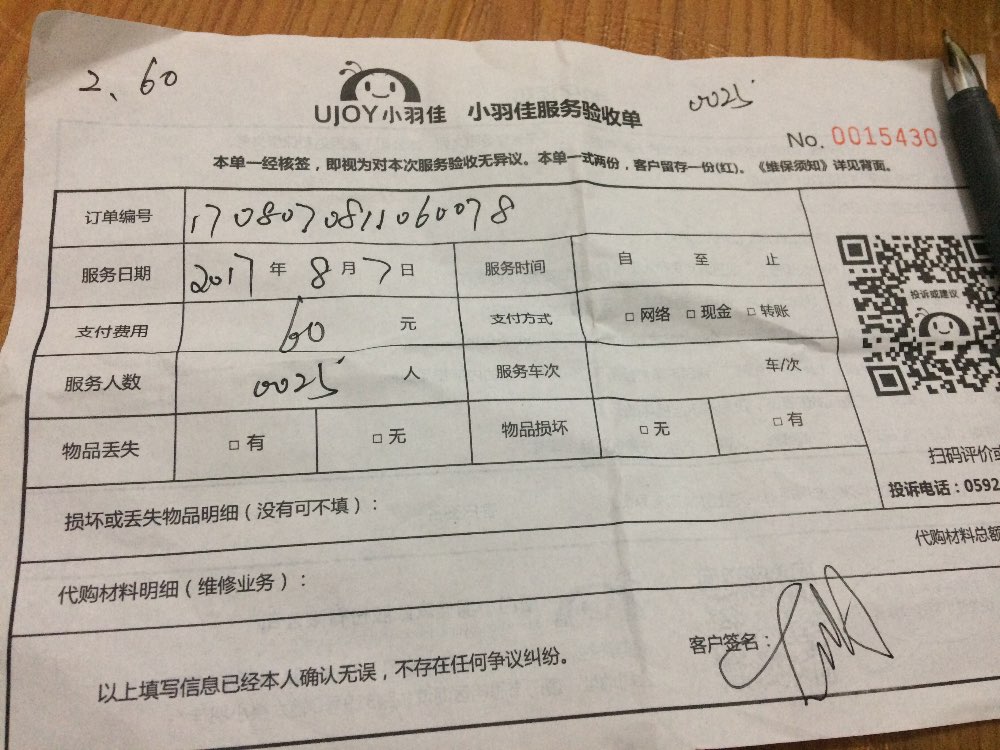 2、60
UJOY小羽佳 小羽佳服务验收单 0025
No. 0015430
本单一经核签，即视为对本次服务验收无异议。本单一式两份，客户留存一份(红)。《维保须知》详见背面。
订单编号 1708070811060078
服务日期 2017 年 8 月 7 日 服务时间 自 至 止
支付费用 60 元 支付方式 □ 网络 □ 现金 □ 转账
服务人数 0025 人 服务车次 车/次
物品丢失 □ 有 □ 无 物品损坏 □ 无 □ 有
投诉或建议
扫码评价或
投诉电话：0592
损坏或丢失物品明细（没有可不填）：
代购材料总额
代购材料明细（维修业务）：
客户签名：
以上填写信息已经本人确认无误，不存在任何争议纠纷。